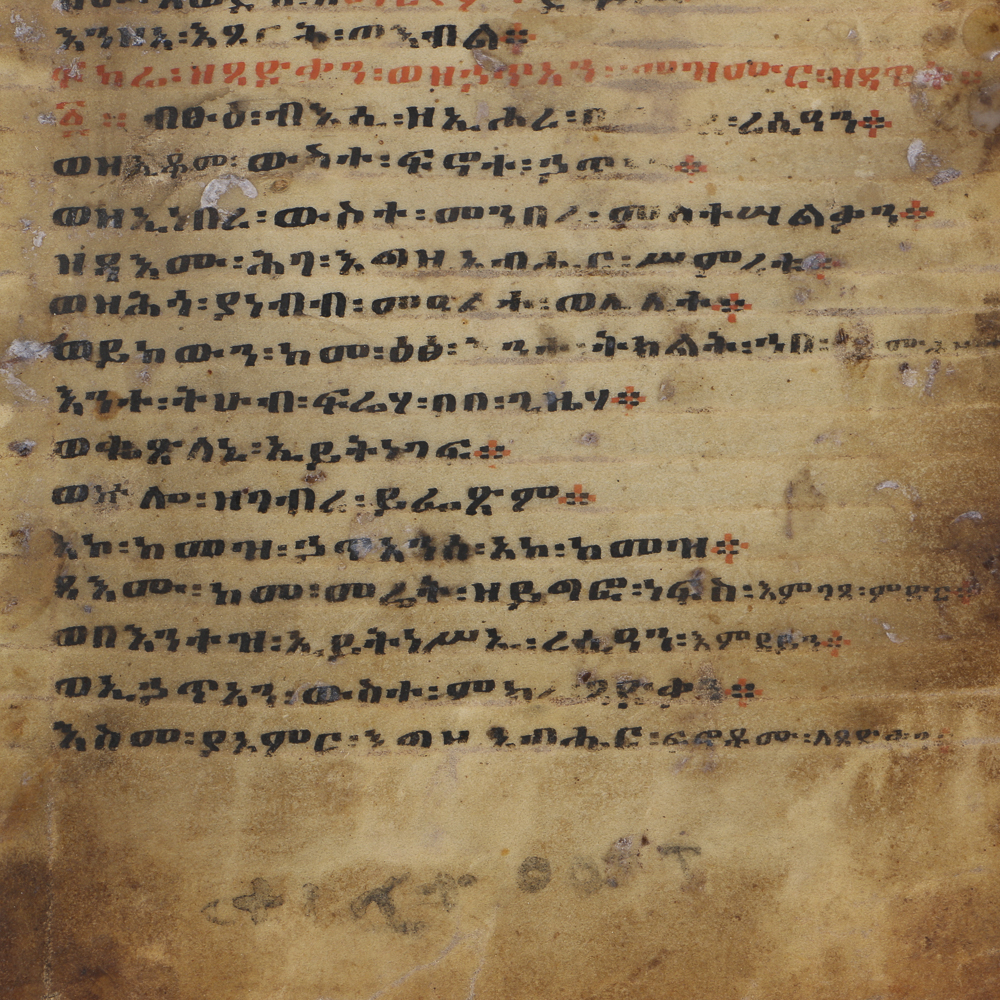 ፍካሬ፡ዘጻድቃን፡ወዘኃጥአን፡መዝሙር፡ዘዳዊት
፩ ። ብፁዕ፡ብእሲ፡ዘኢሖረ፡ ፡ረሲዓን።
ወዘኢቆመ፡ውስተ፡ፍኖተ፡ኃጥ ።
ወዘኢነበረ፡ውስተ፡መንበረ፡መስተሣልቃን።
ዘዳእሙ፡ሕገ፡እግዚአብሔር፡ሥምረቱ።
ወዘሕጎ፡ያነብብ፡መዓልተ፡ወሌሊተ።
ወይከውን፡ከመ፡ዕፅ፡ እንተ፡ትክልት፡ኀበ፡
እንተ፡ትሁብ፡ፍሬሃ፡በበ፡ጊዜሃ።
ወቈጽላኒ፡ኢይትነገፍ።
ወኵሎ፡ዘገብረ፡ይፌጽም።
አኮ፡ከመዝ፡ኃጥአንሰ፡አኮ፡ከመዝ።
ዳእሙ፡ከመ፡መሬት፡ዘይግሕፎ፡ነፍስ፡እምገጸ፡ምድር።
ወበእንተዝ፡ኢይትነሥኡ፡ረሲዓን፡እምደይን።
ወኢኃጥአን፡ውስተ፡ምክረ፡ጻድቃን።
እስመ፡ያአምር፡እግዚአብሔር፡ፍኖቶሙ፡ለጻድቃን።